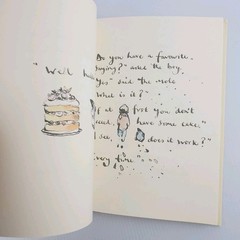 "Well
Do you have a favourite
saying?" asked the boy.
"Yes" said the mole
"What is it?"
"If at first you don't
succeed, have some cake."
"I see, does it work?"
"Every time."